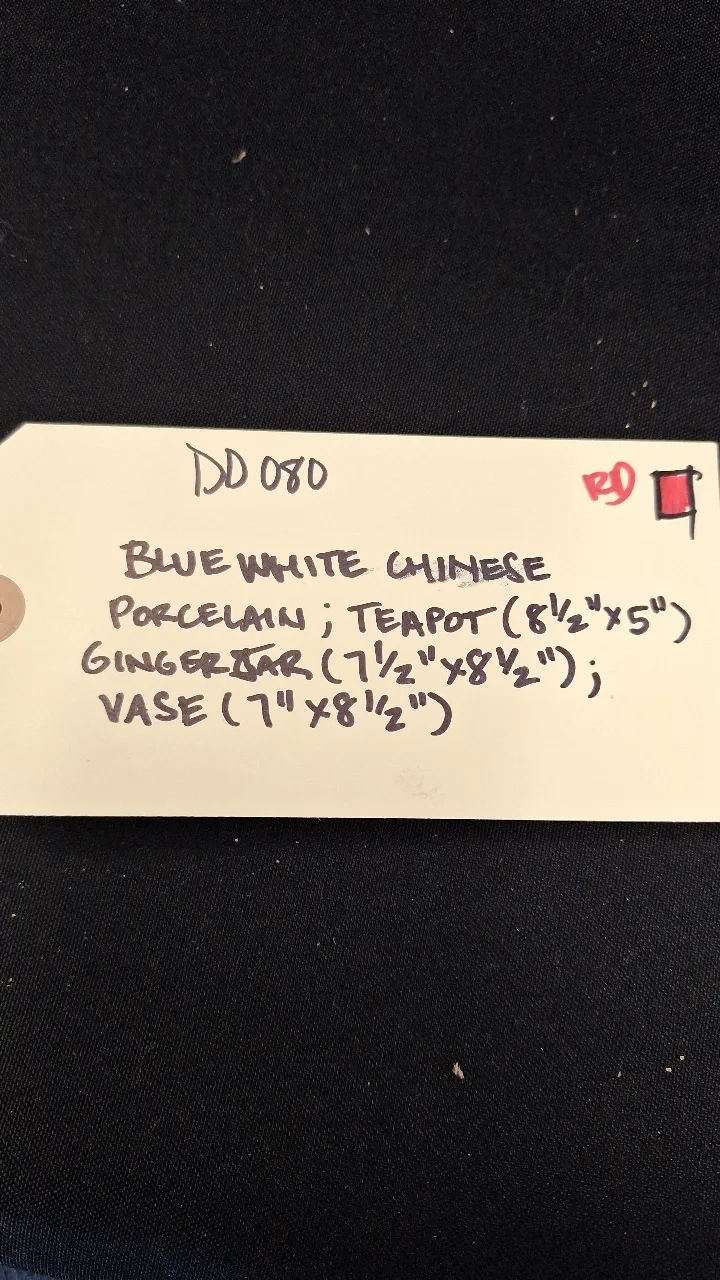 DD 080
RD
BLUE WHITE CHINESE
PORCELAIN ; TEAPOT (8 1/2" x 5")
GINGER JAR (7 1/2" x 8 1/2") ;
VASE (7" x 8 1/2")